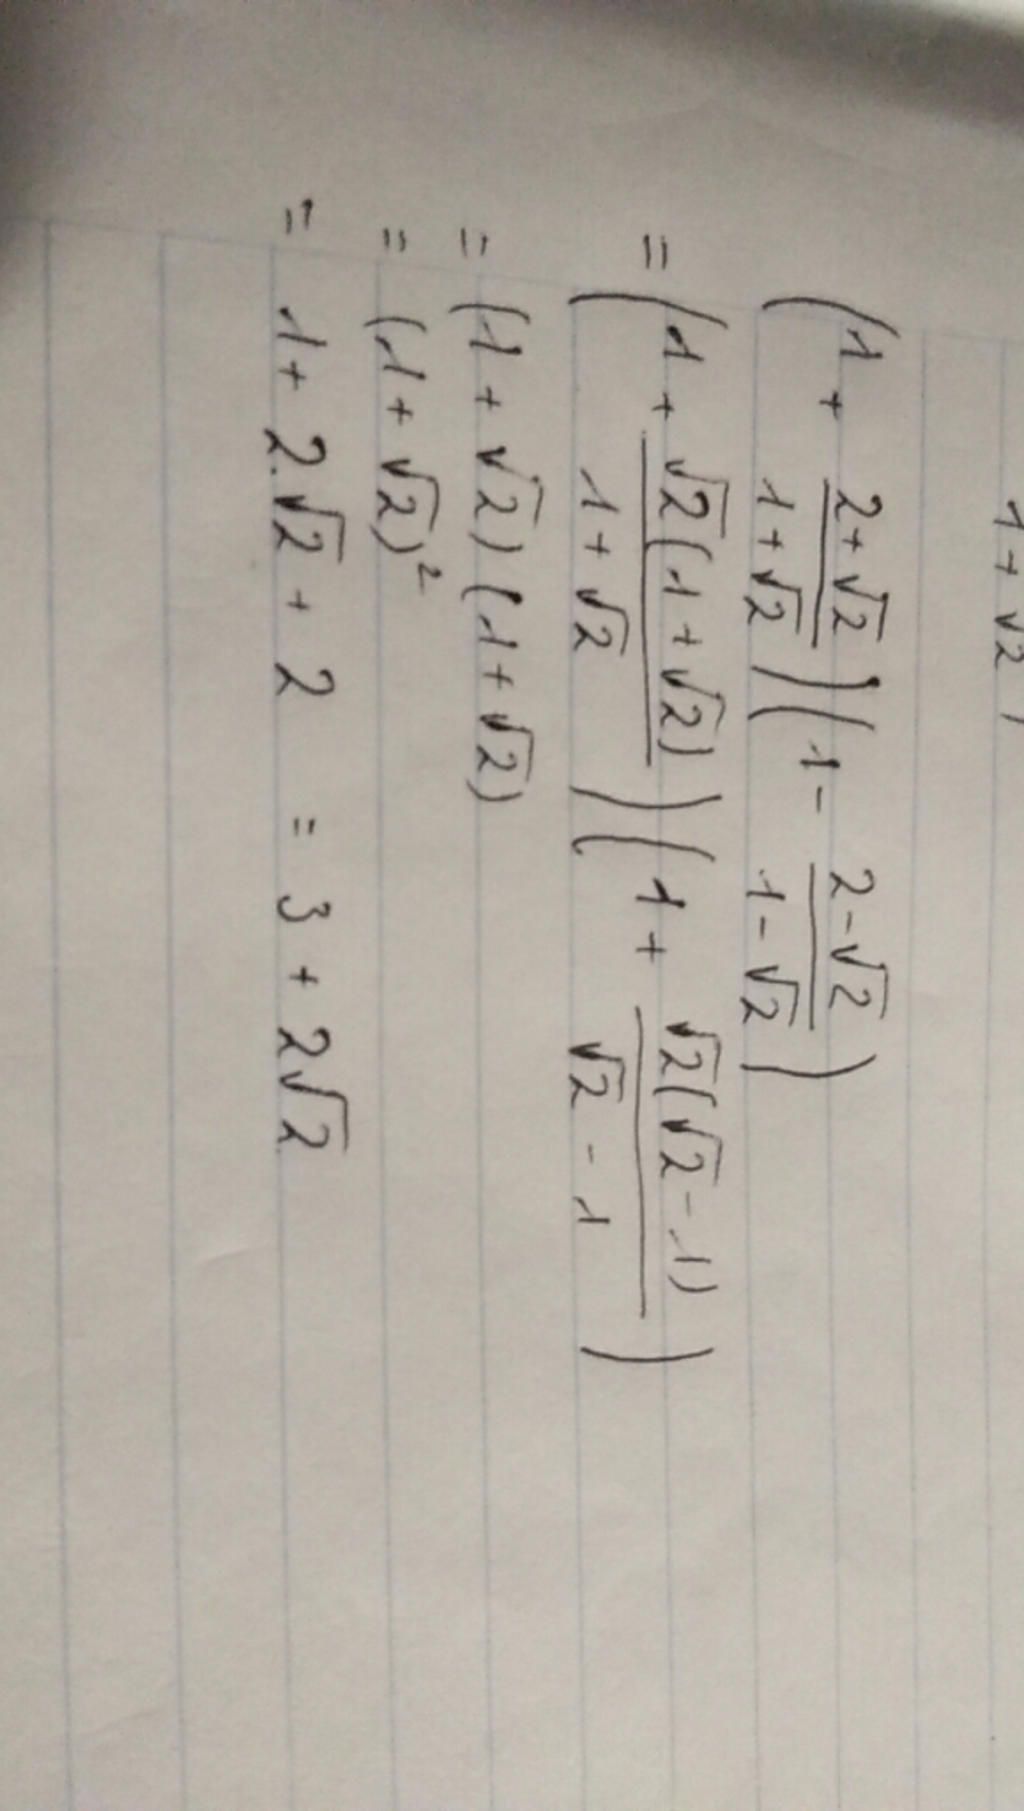 1 + √2
(1 + (2+√2)/(1+√2))(1 - (2-√2)/(1-√2))
= (1 + √2(1+√2)/(1+√2))(1 + √2(√2-1)/(√2-1))
= (1 + √2)(1+√2)
= (1+√2)²
= 1+ 2.√2 + 2 = 3 + 2√2